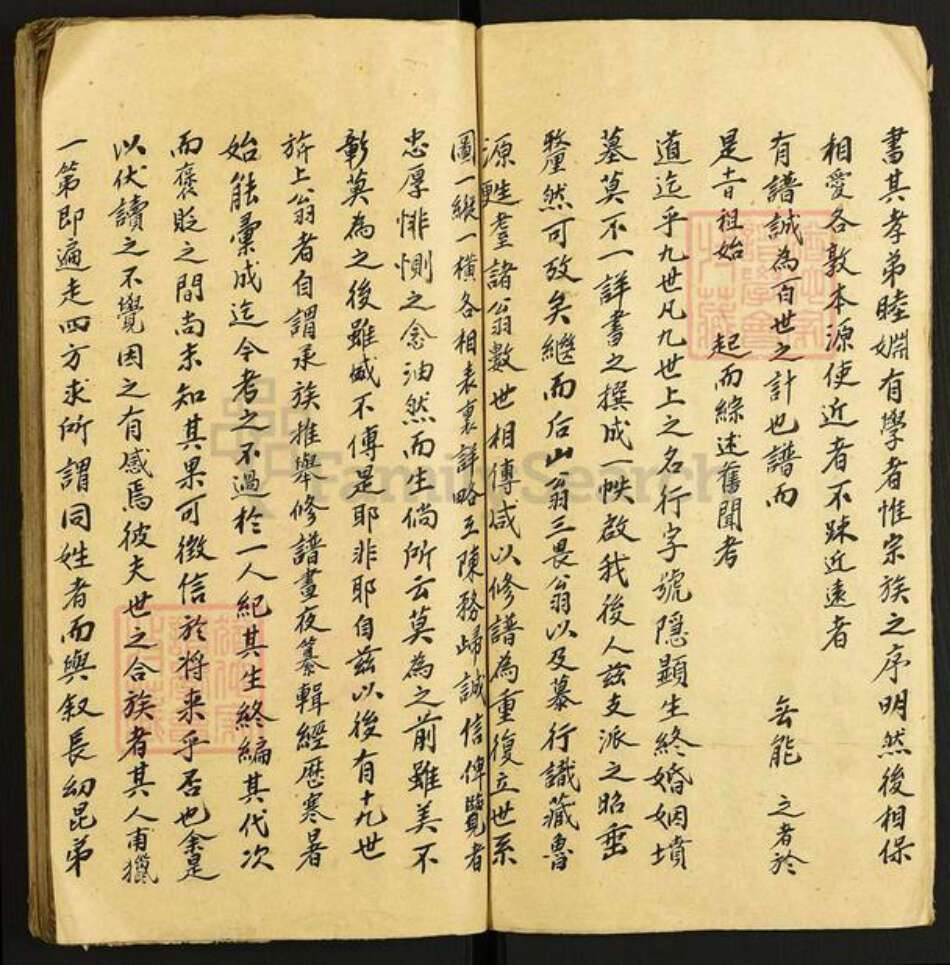 書其孝弟睦婣有學者惟宗族之序明然後相保
相愛各敦本源使近者不踈近遠者
有譜誠為百世之計也譜而 無能 之者於
是十一祖始 起而綜述舊聞考
道迄乎九世凡九世上之名行字號隱顯生終婚姻墳
墓莫不一詳書之撰成一帙啟我後人兹支派之昭垂
釐然可攷矣繼而后山翁三畏翁以及慕行識藏魯
源甦羣諸翁數世相傳咸以修譜為重復立世系
圖一縱一橫各相表裏詳略互陳務歸誠信俾覽者
忠厚悱惻之念油然而生倘所云莫為之前雖美不
彰莫為之後雖盛不傳是耶非耶自兹以後有十九世
旂上翁者自謂承族推舉修譜晝夜纂輯經歷寒暑
始能彙成迄今考之不過於一人紀其生終編其代次
而褒貶之間尚未知其果可徵信於將来乎否也余是
以伏讀之不覺因之有感焉彼夫世之合族者其人甫獵
一第即遍走四方求所謂同姓者而與叙長幼昆弟
FamilySearch